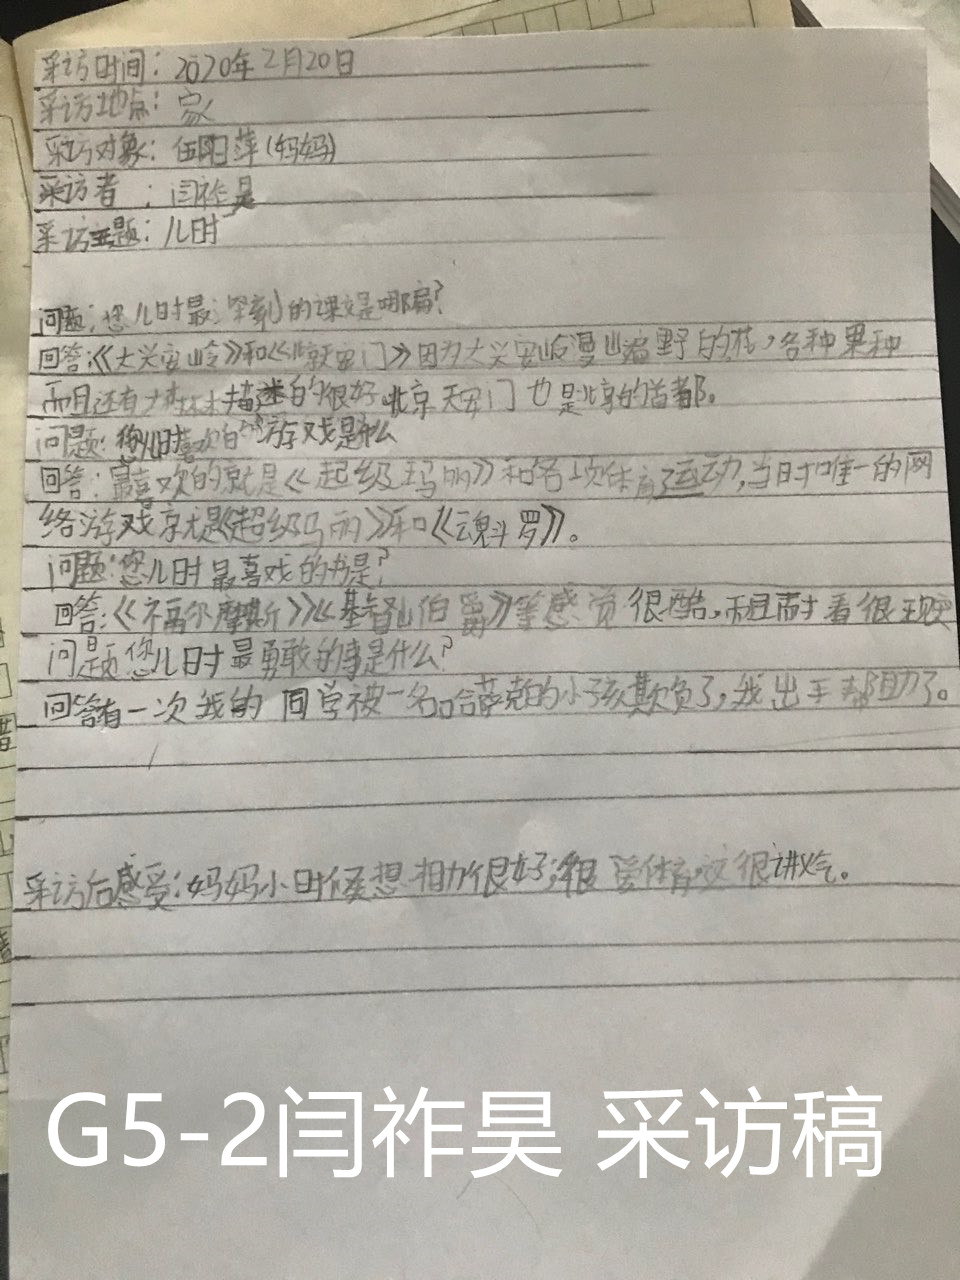 采访时间：2020年2月20日
采访地点：家
采访对象：伍阳萍(妈妈)
采访者：闫祚昊
采访主题：儿时
问题：您儿时最深刻的课文是哪篇？
回答：《大兴安岭》和《北京天安门》因为大兴安岭漫山遍野的花，各种果种
而且还有森林描述的很好，北京天安门也是北京的首都。
问题：您儿时喜欢的游戏是什么
回答：最喜欢的就是《起级玛丽》和各项体育运动，当时唯一的网
络游戏就是《超级马丽》和《魂斗罗》。
问题：您儿时最喜戏的书是？
回答：《福尔摩斯》《基督山伯爵》等感觉很酷。而且耐看很现实
问题您儿时最勇敢的事是什么？
回答有一次我的同学被一名哈萨克的小孩欺负了，我出手帮助了。
采访后感受：妈妈小时候想相力很好，很爱体育，又很讲义气。
G5-2闫祚昊 采访稿